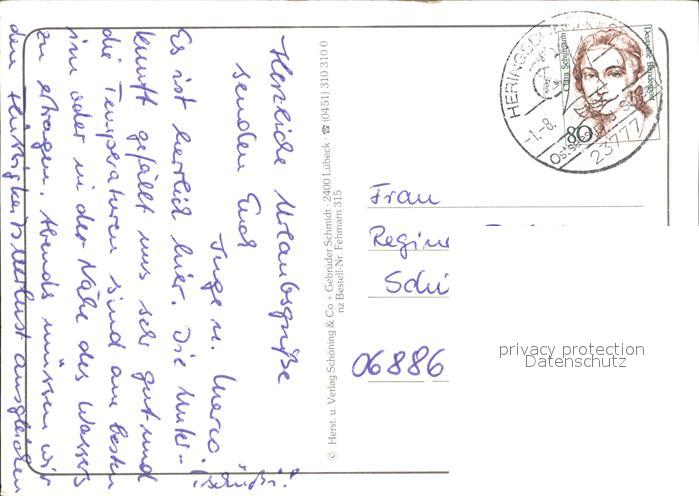 Herzliche Urlaubsgrüße
senden Euch
Inge u. Marco
Es ist herrlich hier. Die Unter-
kunft gefällt uns sehr gut und
die Temperaturen sind am besten
im oder in der Nähe des Wassers
zu ertragen. Abends müssen wir
den Flüssigkeitsverlust ausgleichen
(tschüß!
© Herst. u. Verlag Schöning & Co + Gebrüder Schmidt · 2400 Lübeck · ☎ (0451) 310 310 0
nz Bestell-Nr. Fehmarn 315
Clara Schumann
Deutsche Bundespost
80
-1.-8.
23777
Frau
Regine
Schi
06886
privacy protection
Datenschutz